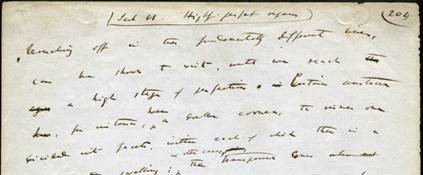 (Sect VI. Highly perfect organs) (204)
branching off in two fundamentally different lines,
can be shown to exist, until we reach
a high stage of perfection. In certain crustaceans
for instance, a double cornea, the inner one
divided into facets, within each of which there is a
swelling; the transparent cones